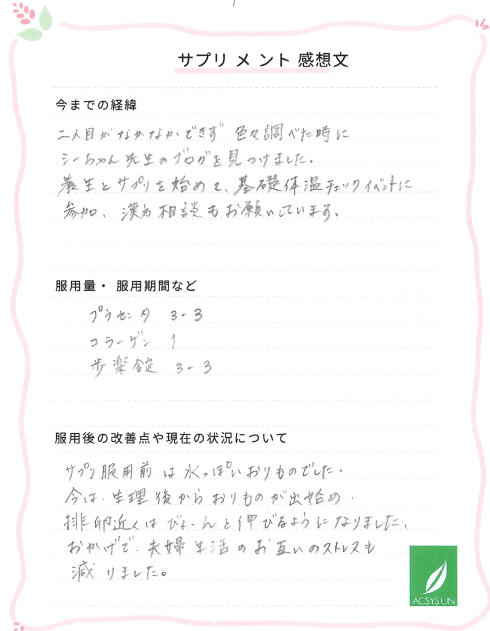 サプリメント感想文
今までの経緯
二人目がなかなかできず、色々調べた時に
シーちゃん先生のブログを見つけました。
養生とサプリを始めて、基礎体温チェックイベントに
参加、漢方相談もお願いしています。
服用量・服用期間など
プラセンタ 3-3
コラーゲン 1
歩楽錠 3-3
服用後の改善点や現在の状況について
サプリ服用前は水っぽいおりものでした。
今は、生理後からおりものが出始め、
排卵近くはびよーんと伸びるようになりました。
おかげで、夫婦生活のお互いのストレスも
減りました。
ACSYSUN